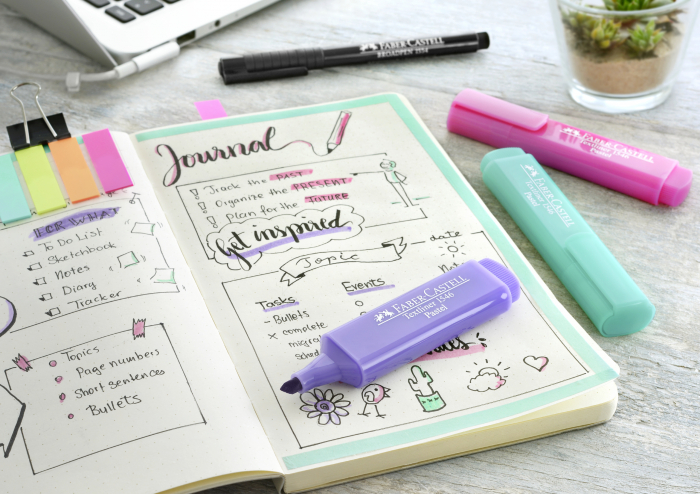 FABER-CASTELL
BROADPEN 1554
FABER-CASTELL
Textliner 1546
Pastel
FABER-CASTELL
Textliner 1546
Pastel
FOR WHAT
To Do List
Sketchbook
Notes
Diary
Tracker
Topics
Page numbers
Short sentences
Bullets
Journal
Track the PAST
Organize the PRESENT
Plan for the FUTURE
Get inspired
Topic
date
Tasks
Events
- Bullets
x complete
FABER-CASTELL
Textliner 1546
Pastel